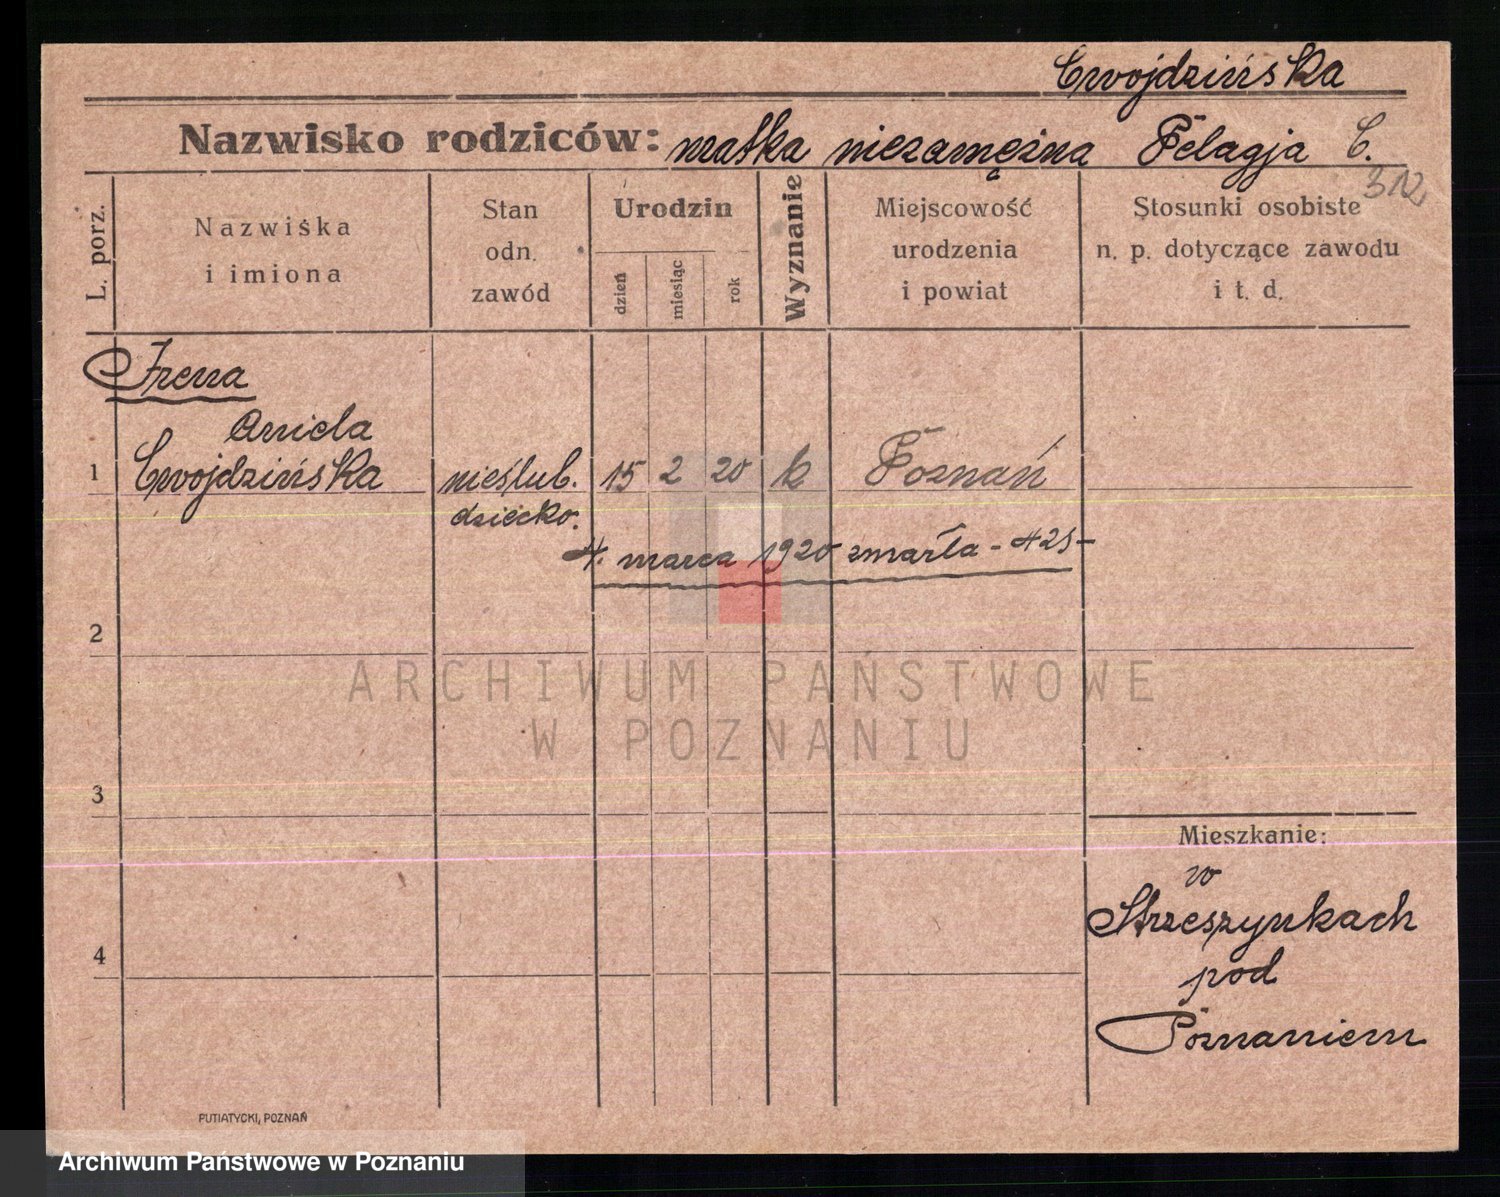 Cwojdzińska
Nazwisko rodziców: matka niezamężna Pelagja C.
312
L. porz.
Nazwiska
i imiona
Stan
odn.
zawód
Urodzin
dzień
miesiąc
rok
Wyznanie
Miejscowość
urodzenia
i powiat
Stosunki osobiste
n. p. dotyczące zawodu
i t. d.
Irena
Aniela
1 Cwojdzińska nieślub. 15 2 20 k Poznań
dziecko.
4. marca 1920 zmarła - 425 -
2
ARCHIWUM PAŃSTWOWE
W POZNANIU
3
Mieszkanie:
w
Strzeszynkach
4
pod
Poznaniem
PUTIATYCKI, POZNAŃ
Archiwum Państwowe w Poznaniu